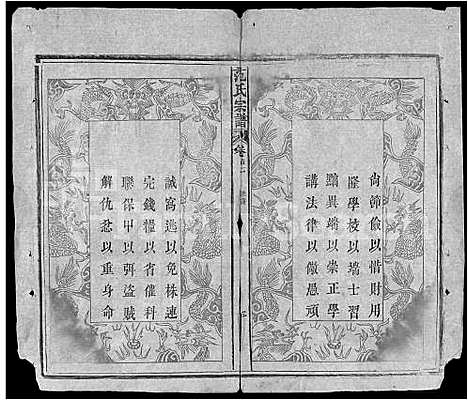 尚節儉以惜財用
隆學校以端士習
黜異端以崇正學
講法律以儆愚頑
范氏宗譜
卷首二
誡窩逃以免株連
完錢糧以省催科
聯保甲以弭盜賊
解仇忿以重身命